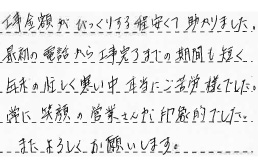 工事金額がびっくりする程安くて助かりました。
最初の電話から工事完了までの期間も短く
年末の忙しく寒い中本当にご苦労様でした。
常に笑顔の営業さんが印象的でした。
またよろしくお願いします。